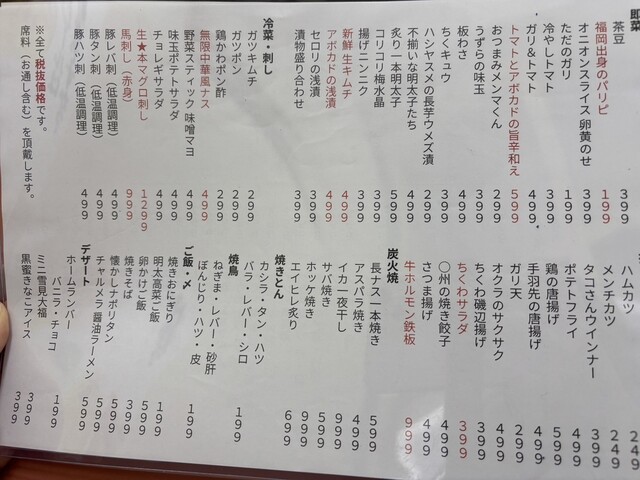 即菜
茶豆 399
福岡出身のパリピ 199
オニオンスライス 卵黄のせ 399
ただのガリ 199
冷やしトマト 399
ガリ&トマト 499
トマトとアボカドの旨辛和え 599
おつまみメンマくん 299
うずらの味玉 399
板わさ 499
ちくキュウ 399
ハシヤスメの長芋ウメズ漬 299
不揃いな明太子たち 499
炙り一本明太子 599
コリコリ梅水晶 399
揚げニンニク 399
新鮮 生キムチ 499
アボカドの浅漬 499
セロリの浅漬 399
漬物盛り合わせ 399
冷菜・刺し
ガツキムチ 299
ガツポン 299
鶏かわポン酢 299
無限中華風ナス 499
野菜スティック 味噌マヨ 499
味玉ポテトサラダ 499
チョレギサラダ 499
生★本マグロ刺し 1299
馬刺し（赤身） 999
豚レバ刺（低温調理） 499
豚タン刺（低温調理） 499
豚ハツ刺（低温調理） 499
※全て税抜価格です。
席料（お通し含む）を頂戴します。
ハムカツ 249
メンチカツ 249
タコさんウインナー 399
ポテトフライ 499
鶏の唐揚げ 599
手羽先の唐揚げ 499
ガリ天 299
オクラのサクサク 499
ちくわ磯辺揚げ 399
ちくわサラダ 399
〇州の焼き餃子 499
さつま揚げ 499
牛ホルモン鉄板 999
炭火焼
長ナス一本焼き 599
アスパラ焼き 499
イカ一夜干し 999
サバ焼き 599
ホッケ焼き 999
エイヒレ炙り 699
焼きとん
カシラ・タン・ハツ
バラ・レバー・シロ 199
焼鳥
ねぎま・レバー・砂肝
ぼんじり・ハツ・皮 199
ご飯・〆
焼きおにぎり 199
明太高菜ご飯 599
卵かけご飯 399
焼きそば 599
懐かしナポリタン 599
チャルメラ醤油ラーメン 599
デザート
ホームランバー
バニラ・チョコ 199
ミニ雪見大福 399
黒蜜きなこアイス 399